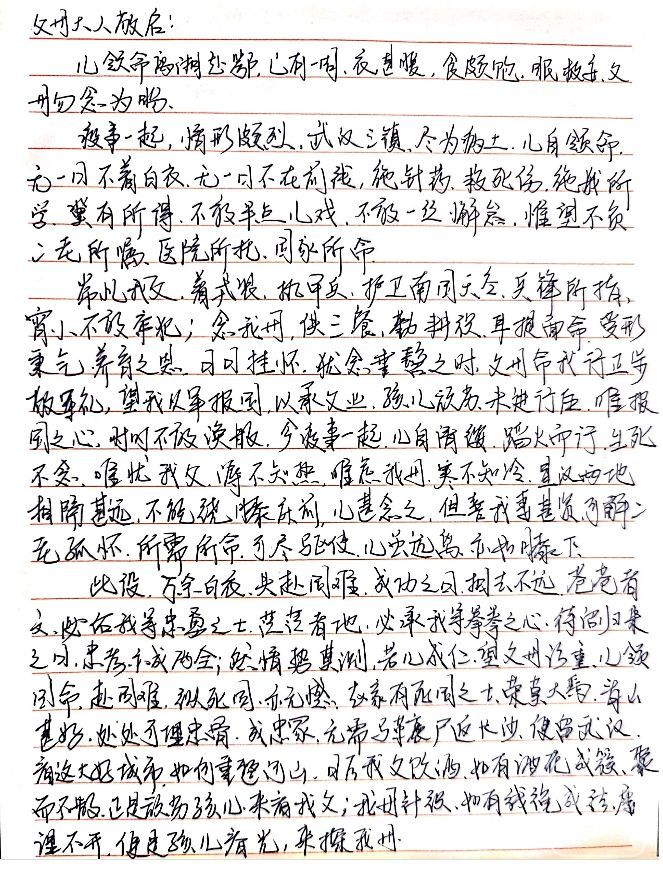 父母大人敬启:
儿领命离湘赴鄂,已有一周,衣甚暖,食颇饱,眠较安,父
母勿念为盼.
疫事一起,情形颇烈,武汉三镇,尽为病土,儿自领命,
无一日不着白衣,无一日不在前线,施针药,救死伤,施我所
学,冀有所得,不敢半点儿戏,不敢一丝懈怠,惟望不负
二老所嘱,医院所托,国家所命
常忆我父,着戎装,执甲兵,护卫南国天空,兵锋所指,
宵小不敢牵犯;念我母,供三餐,勤耕役,耳提面命,受形
秉气,养育之恩,日日挂怀,犹念垂髫之时,父母命我行正步
敬军礼,望我从军报国,以承父业,孩儿顽劣,未进行伍,唯报
国之心,时时不敢涣散,今疫事一起,儿自请缨,蹈火而行,生死
不念,唯忧我父,溽不知热,唯忧我母,寒不知冷,星汉两地
相隔甚远,不能绕膝床前,儿甚念之,但吾妻甚贤,可解二
老孤怀,所需所命,可尽驱使,儿虽远离,亦如膝下.
此役,万千白衣,共赴国难,成功之日,相去不远,苍苍者
天,必佑我等忠勇之士,茫茫者地,必承我等拳拳之心,待诏归来
之日,忠孝亦成两全;然情势莫测,若儿成仁,望父母珍重,儿领
国命,赴国难,纵死国,亦无憾.赵家有死国之士,荣莫大焉,青山
甚好,处处可埋忠骨,成忠冢,无需马革裹尸返长沙,便留武汉,
看这大好城市,如何重整河山,日后我父饮酒,如有酒花成簇,聚
而不散,正是顽劣孩儿,来看我父;我母针织,如有线绕成结,屡
理不开,便是孩儿春光,来探我母.